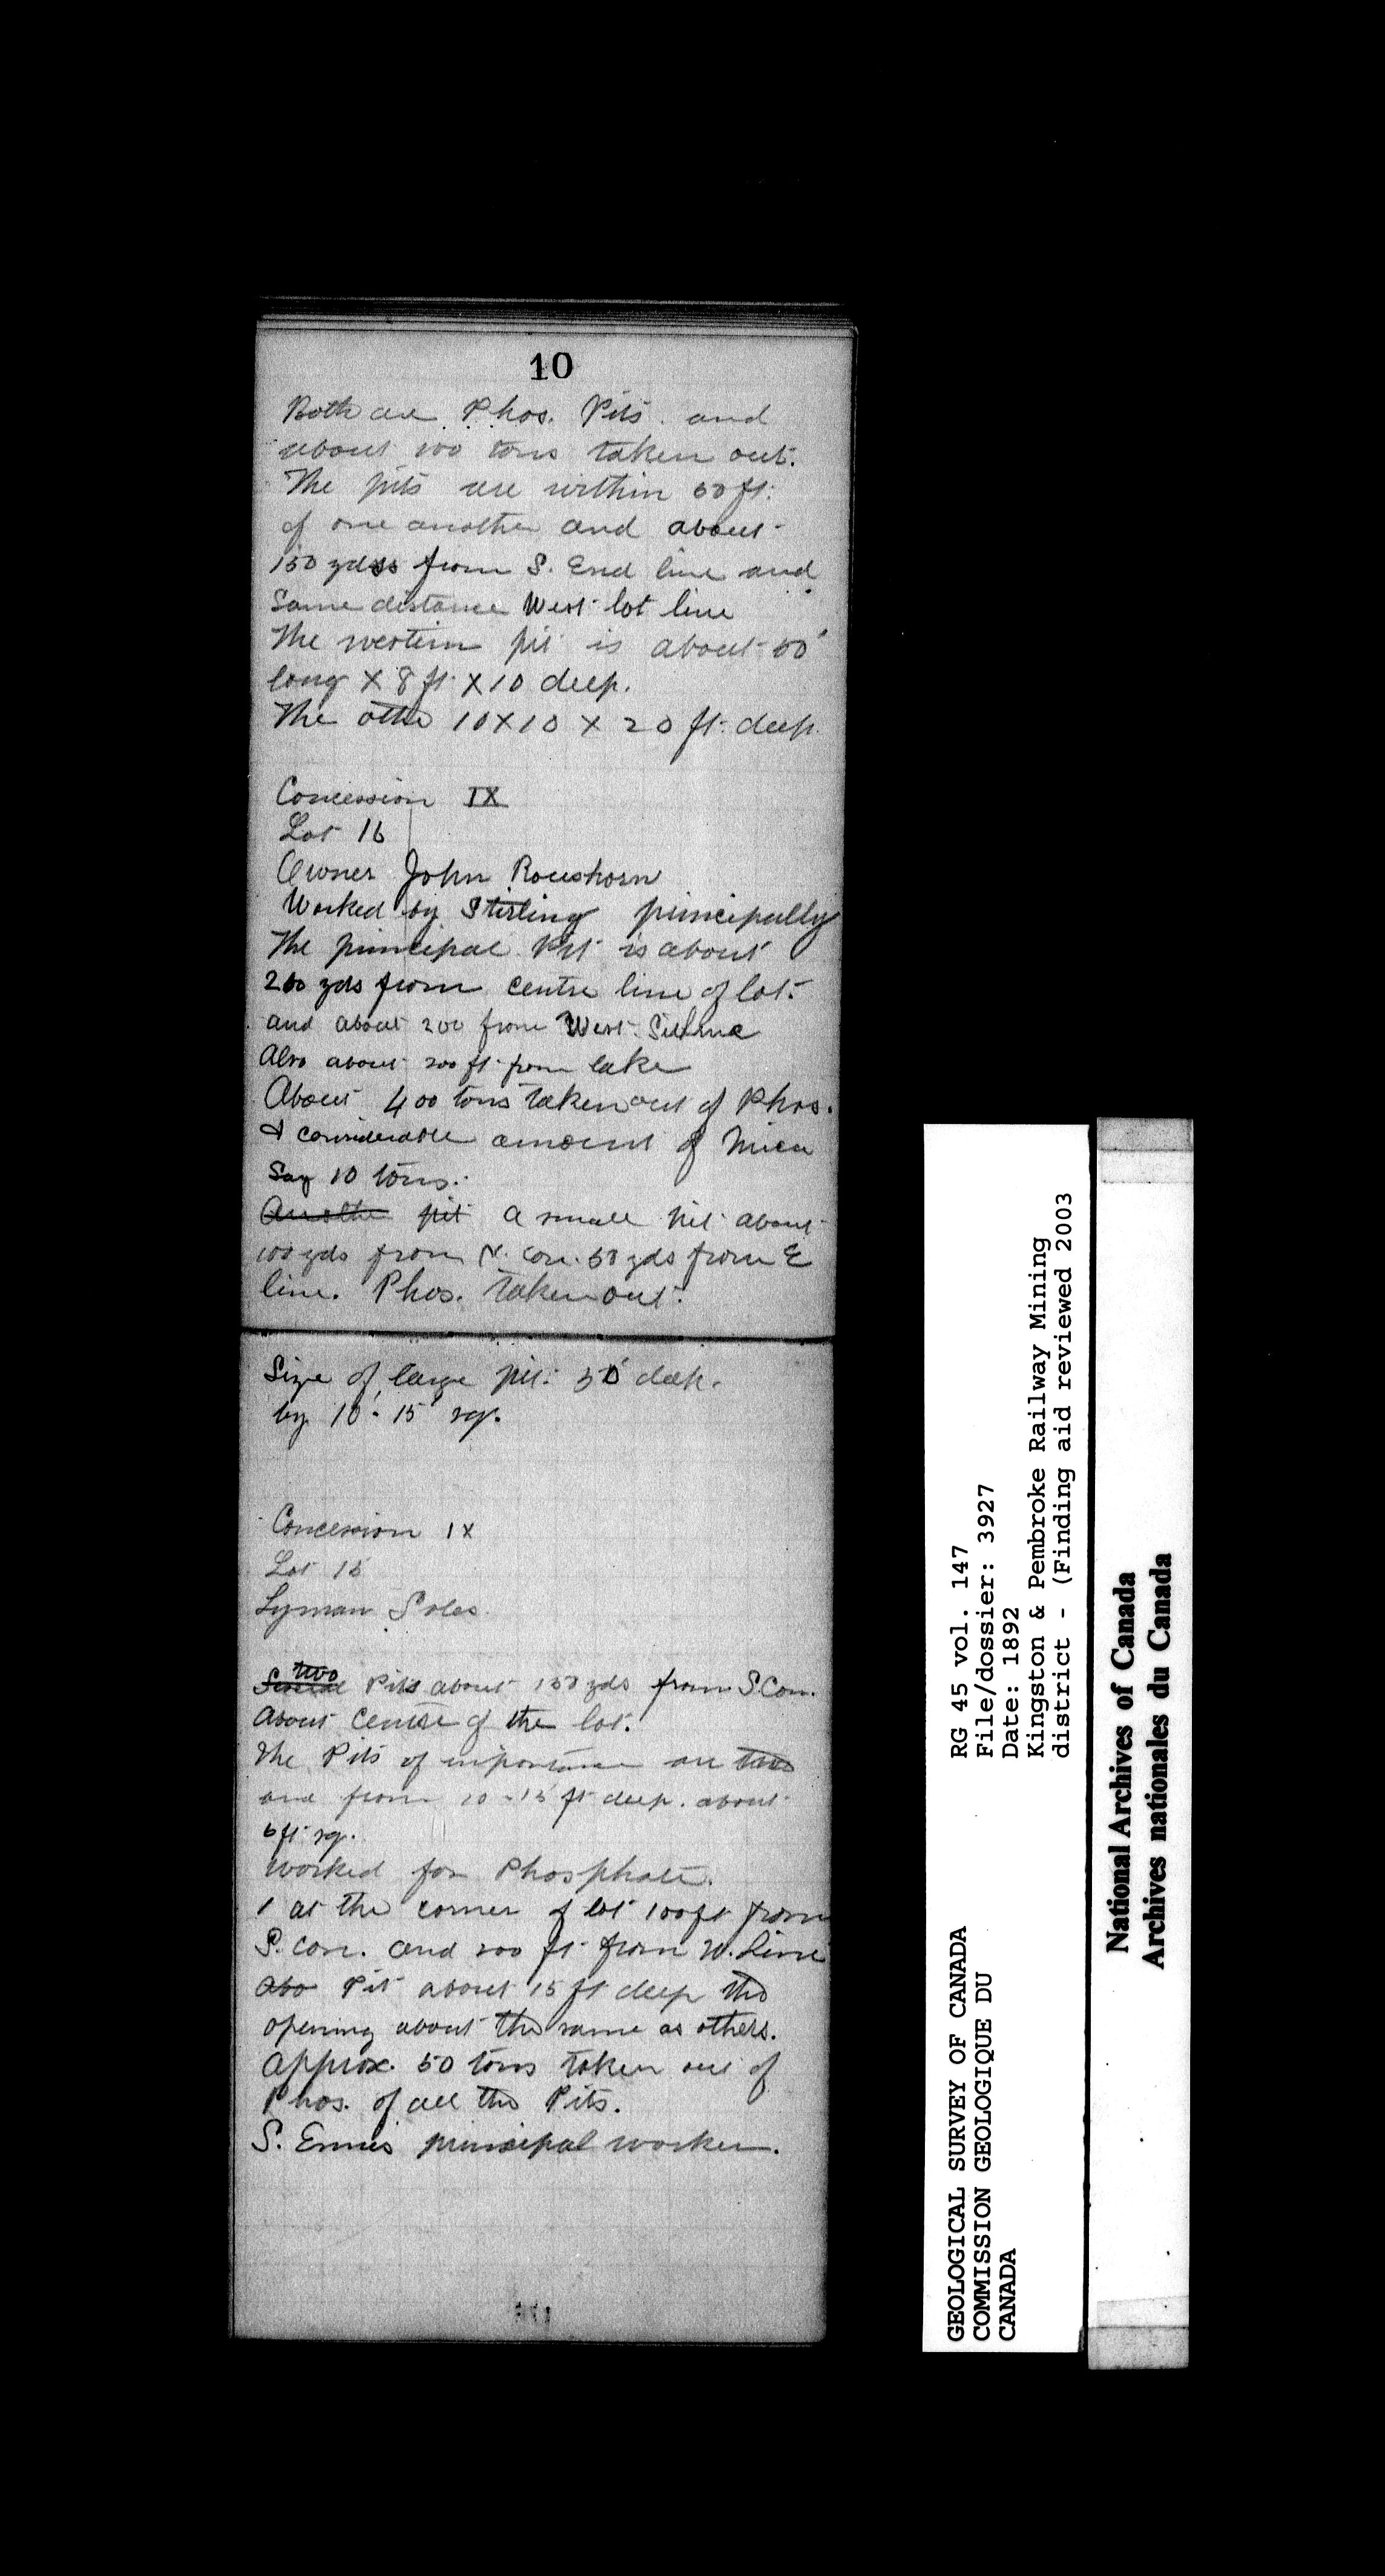 10
Both are Phos. Pits. and
about 100 tons taken out.
The pits are within 50 ft.
of one another and about
150 yds from S. End line and
Same distance West lot line
The western pit is about 50'
long X 8 ft X 10 deep.
The other 10 X 10 X 20 ft. deep.
Concession IX
Lot 16
Owner John
Worked by Stirling principally
The principal Pit is about
200 yds from centre line of lot.
and about 200 from West
Also about 200 ft from lake
About 400 tons taken out of Phos.
& considerable amount of Mica
Say 10 tons.
Another pit a small pit about
100 yds from N. Con. 50 yds from E
line. Phos. taken out.
Size of large pit: 50' deep.
by 10 - 15' sq.
Concession IX
Lot 15
Lyman Soles
Several two Pits about 150 yds from S. Con.
About centre of the lot.
The Pits of importance are two
and from 10 - 15 ft deep. about
6 ft sq.
Worked for Phosphate.
1 at the corner of lot 100 ft from
S. con. and 200 ft from W. Line
abo Pit about 15 ft deep the
opening about the same as others.
Approx. 50 tons taken out of
Phos. of all the Pits.
S. Ennis principal worker.
GEOLOGICAL SURVEY OF CANADA
COMMISSION GEOLOGIQUE DU
CANADA
RG 45 vol. 147
File/dossier: 3927
Date: 1892
Kingston & Pembroke Railway Mining
district - (Finding aid reviewed 2003
National Archives of Canada
Archives nationales du Canada